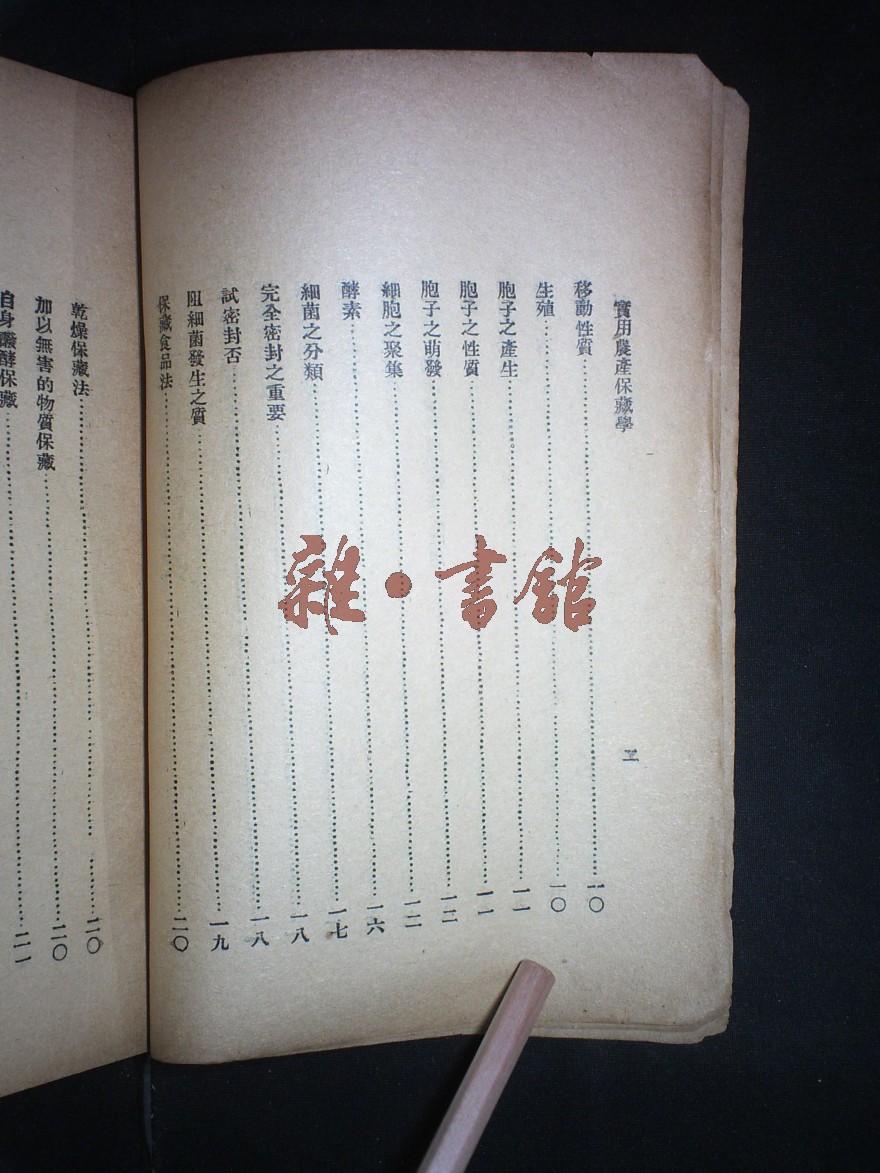 實用農產保藏學
移動性質……一〇
生殖……一〇
胞子之產生……一一
胞子之性質……一一
胞子之萌發……一二
細胞之聚集……一二
酵素……一六
細菌之分類……一七
完全密封之重要……一八
試密封否……一八
阻細菌發生之質……一九
保藏食品法……二〇
乾燥保藏法……二〇
加以無害的物質保藏……二〇
自身醱酵保藏……二一
雜·書館